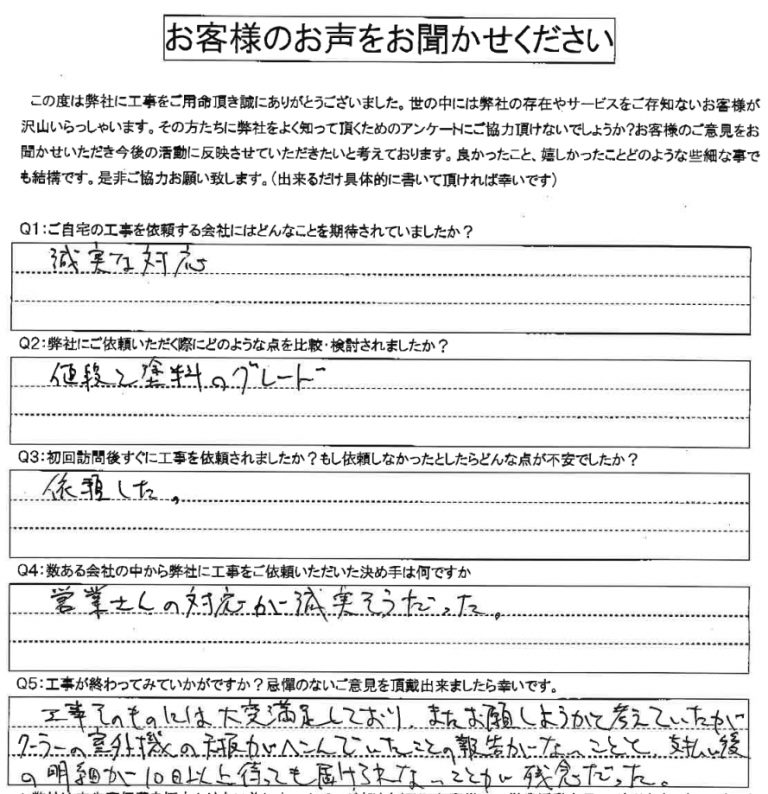 お客様のお声をお聞かせください
この度は弊社に工事をご用命頂き誠にありがとうございました。世の中には弊社の存在やサービスをご存知ないお客様が
沢山いらっしゃいます。その方たちに弊社をよく知って頂くためのアンケートにご協力頂けないでしょうか?お客様のご意見をお
聞かせいただき今後の活動に反映させていただきたいと考えております。良かったこと、嬉しかったことどのような些細な事で
も結構です。是非ご協力お願い致します。(出来るだけ具体的に書いて頂ければ幸いです)
Q1:ご自宅の工事を依頼する会社にはどんなことを期待されていましたか?
誠実な対応
Q2:弊社にご依頼いただく際にどのような点を比較・検討されましたか?
値段と塗料のグレード
Q3:初回訪問後すぐに工事を依頼されましたか?もし依頼しなかったとしたらどんな点が不安でしたか?
依頼した。
Q4:数ある会社の中から弊社に工事をご依頼いただいた決め手は何ですか
営業さんの対応が誠実そうだった。
Q5:工事が終わってみていかがですか?忌憚のないご意見を頂戴出来ましたら幸いです。
工事そのものには大変満足しており、またお願しようかと考えていたが
クーラーの室外機の天板がへこんでいたことの報告がなっことと、支払い後
の明細が10日以上待っても届けられなっことが残念だった。